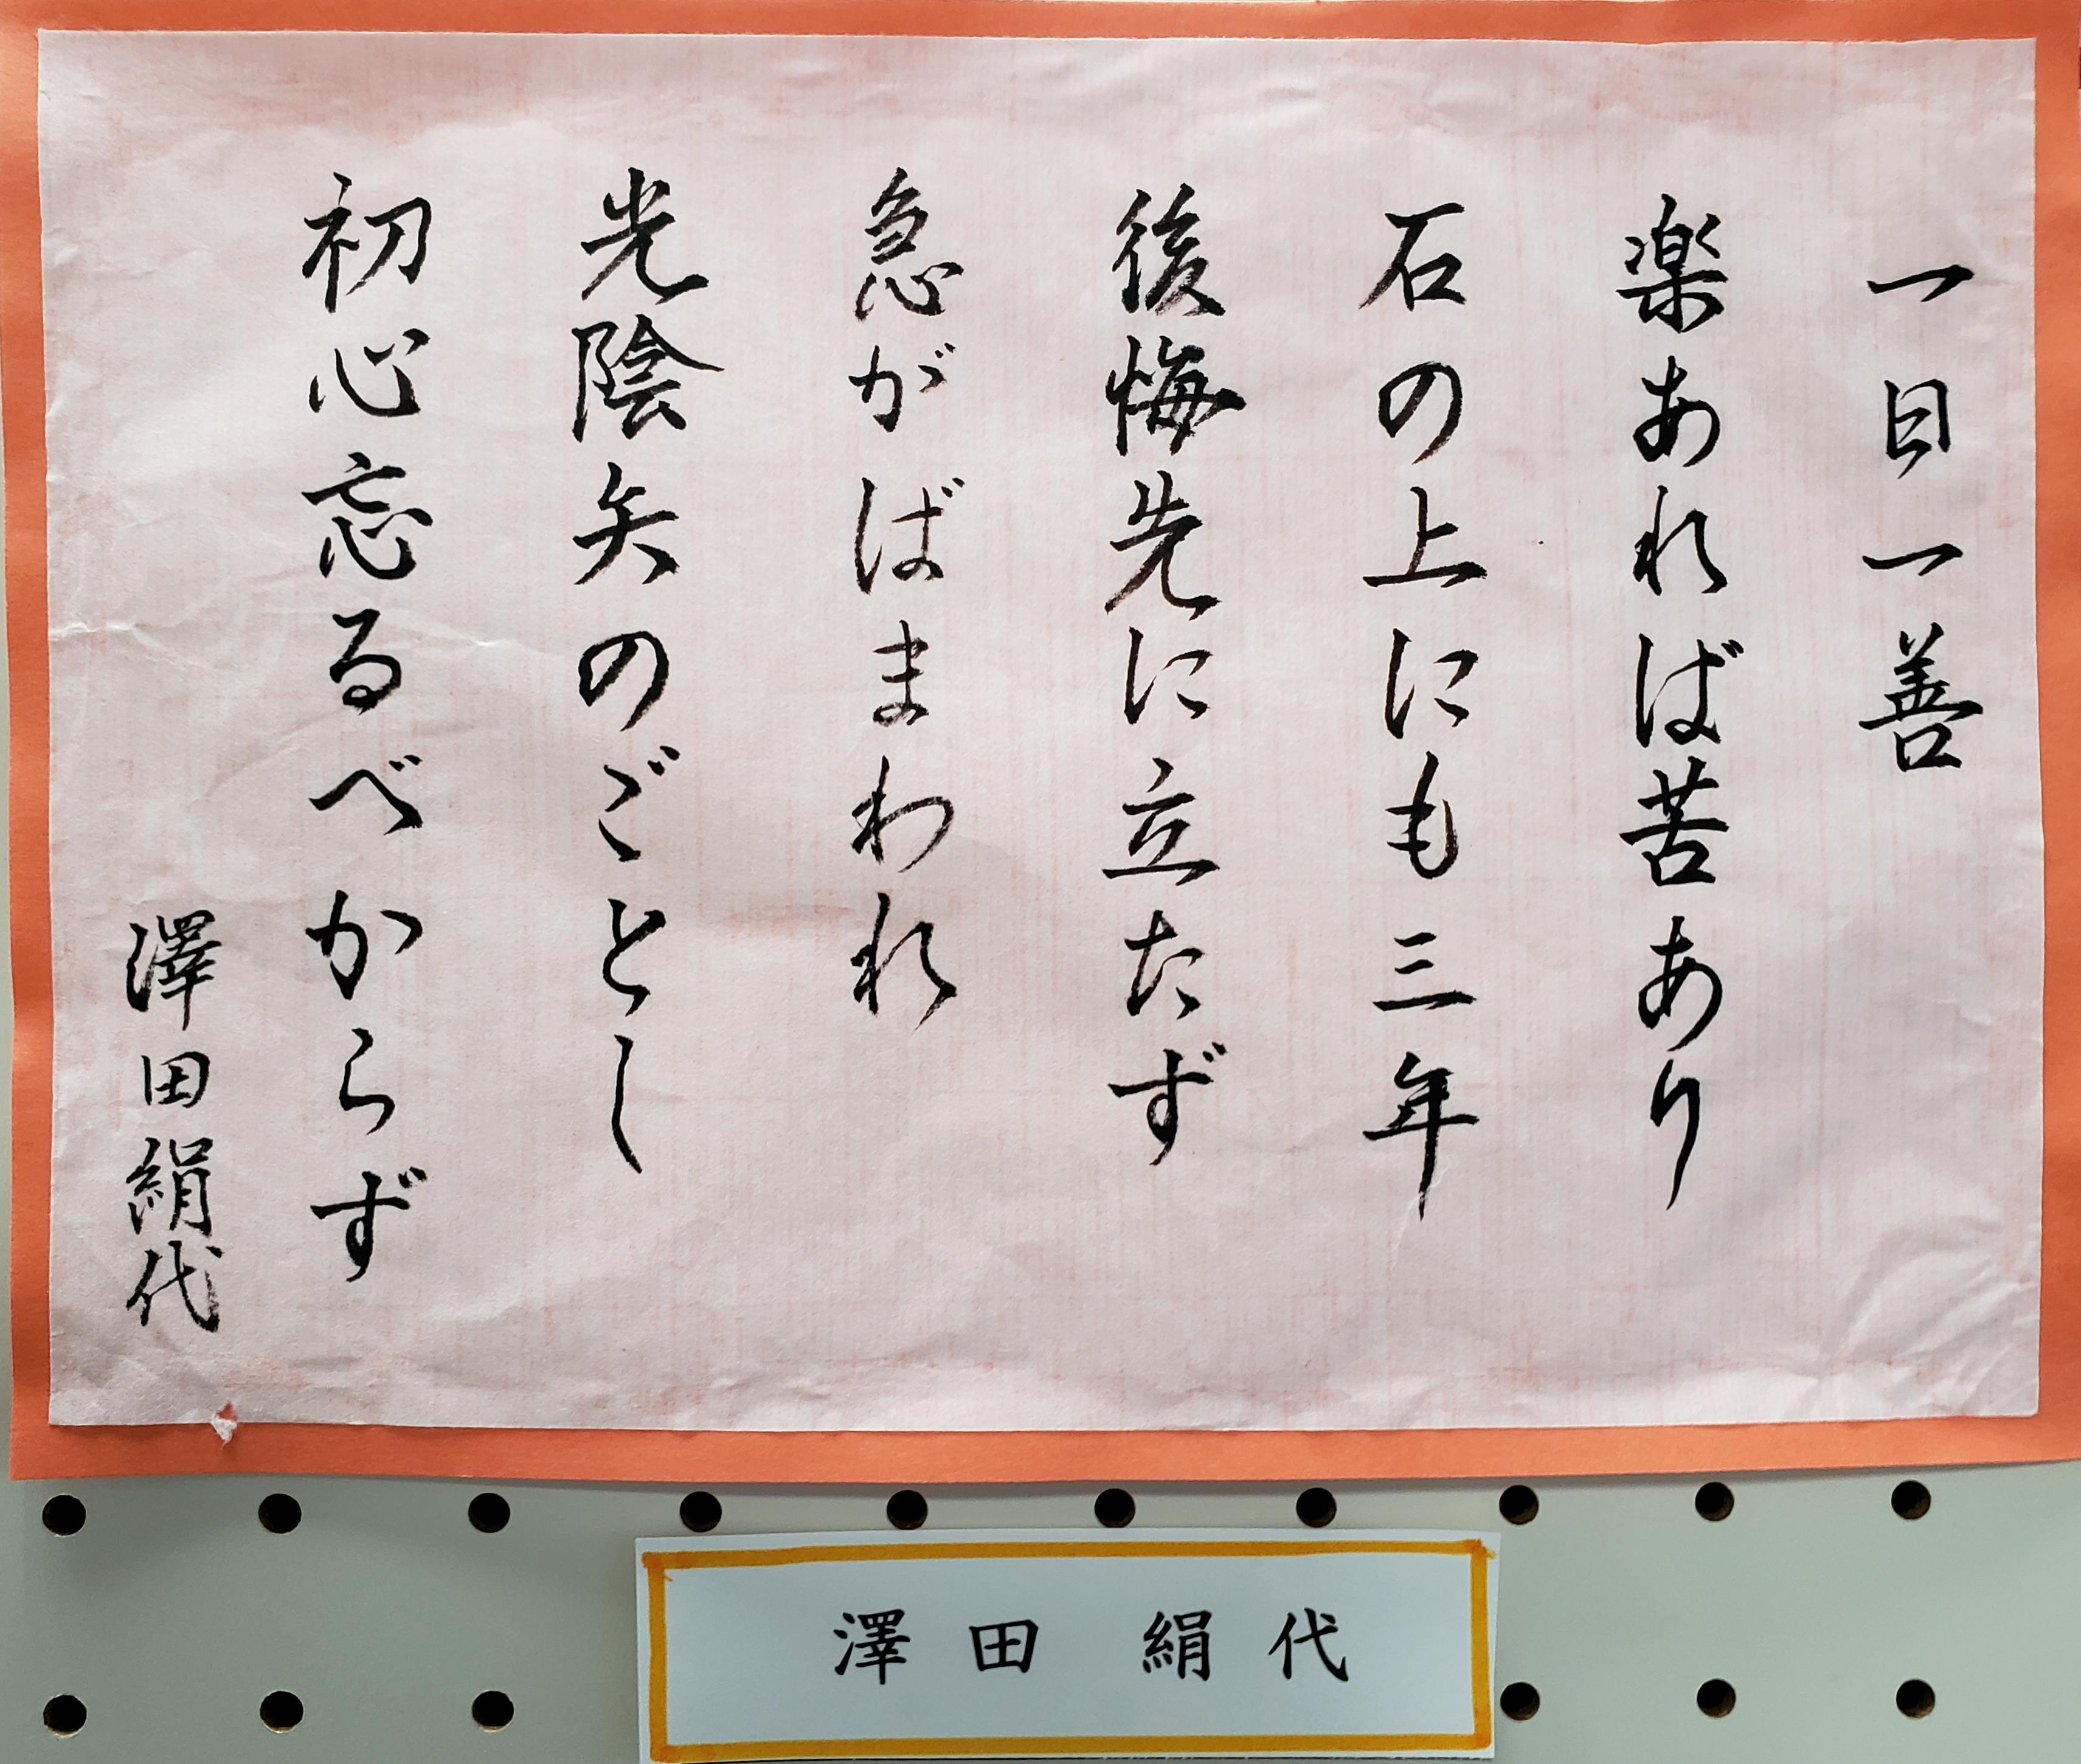 一日一善
楽あれば苦あり
石の上にも三年
後悔先に立たず
急がばまわれ
光陰矢のごとし
初心忘るべからず
澤田絹代
澤田 絹代